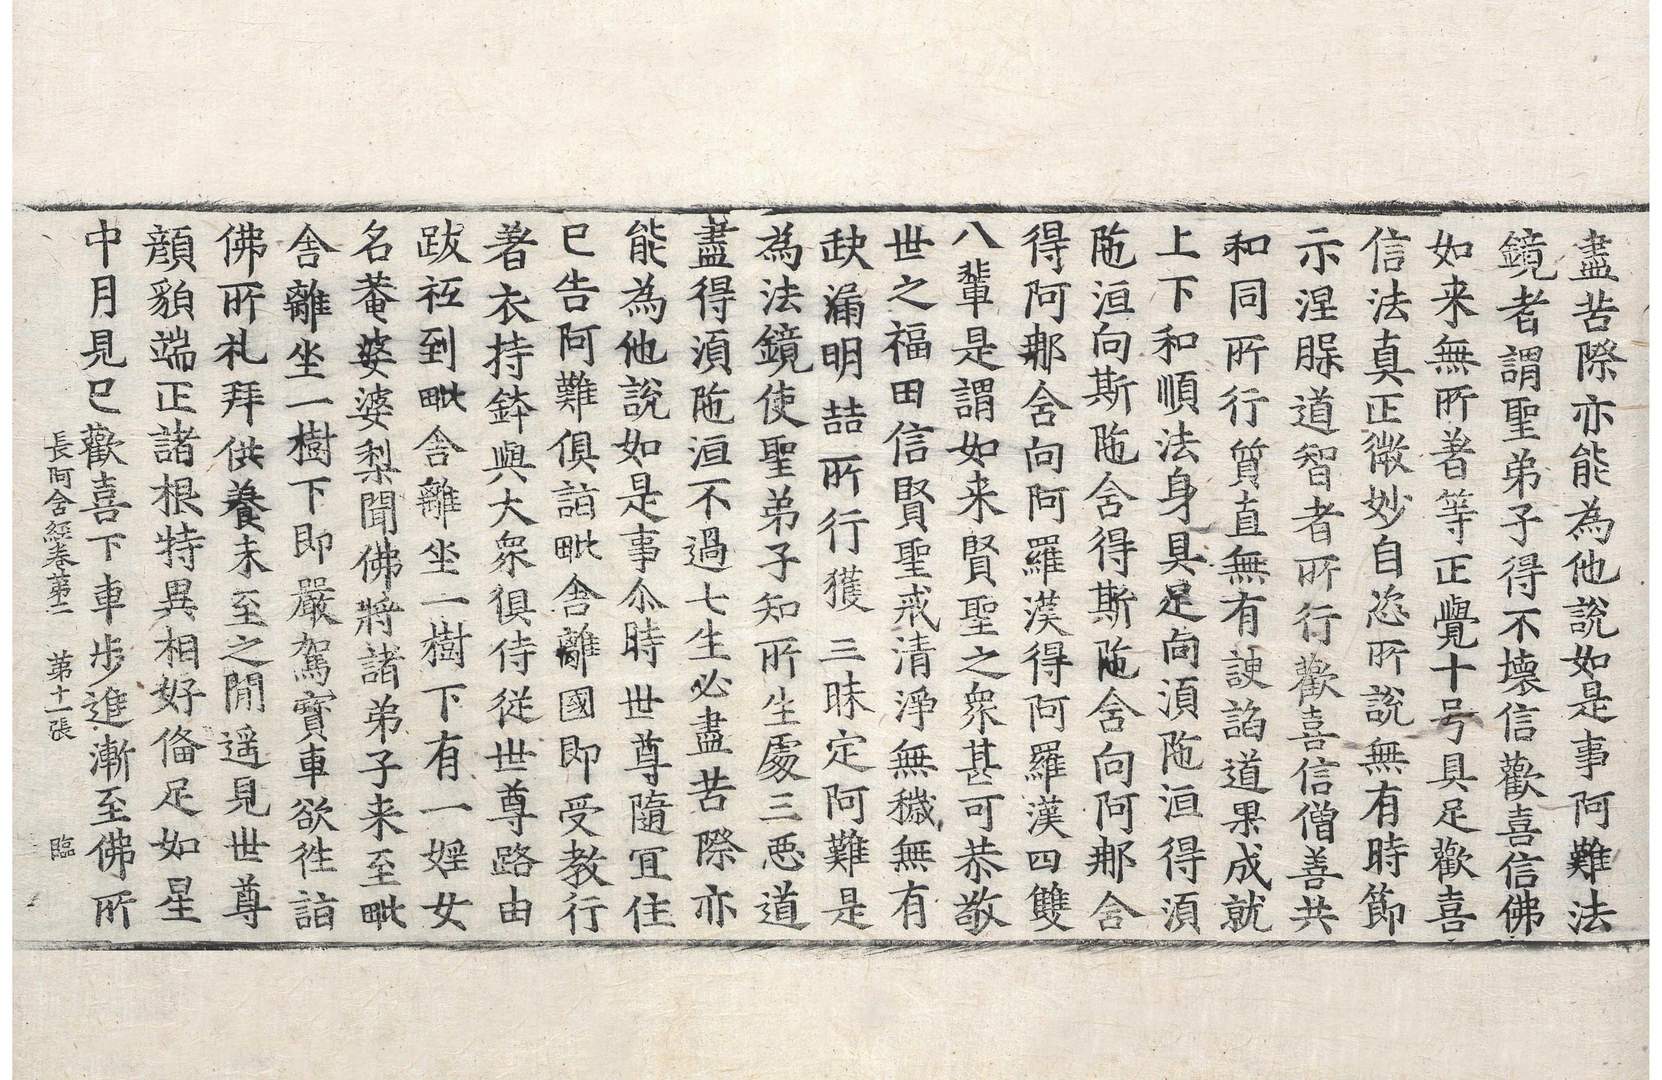 盡苦際亦能為他說如是事阿難法
鏡者謂聖弟子得不壞信歡喜信佛
如来無所著等正覺十号具足歡喜
信法真正微妙自恣所說無有時節
示涅脲道智者所行歡喜信僧善共
和同所行質直無有諛諂道果成就
上下和順法身具足向湏陁洹得湏
陁洹向斯陁含得斯陁含向阿那含
得阿那含向阿羅漢得阿羅漢四雙
八輩是謂如来賢聖之衆甚可恭敬
世之福田信賢聖戒清淨無穢無有
缺漏明喆所行獲三昧定阿難是
為法鏡使聖弟子知所生處三惡道
盡得湏陁洹不過七生必盡苦際亦
能為他說如是事尒時世尊隨宜住
已告阿難俱詣毗舍離國即受教行
著衣持鉢與大衆俱侍從世尊路由
跋祇到毗舍離坐一樹下有一婬女
名菴婆婆梨聞佛將諸弟子来至毗
舍離坐一樹下即嚴駕寶車欲往詣
佛所礼拜供養未至之閒遥見世尊
顔貌端正諸根特異相好俻足如星
中月見已歡喜下車步進漸至佛所
長阿含經卷第二 第十一張 臨